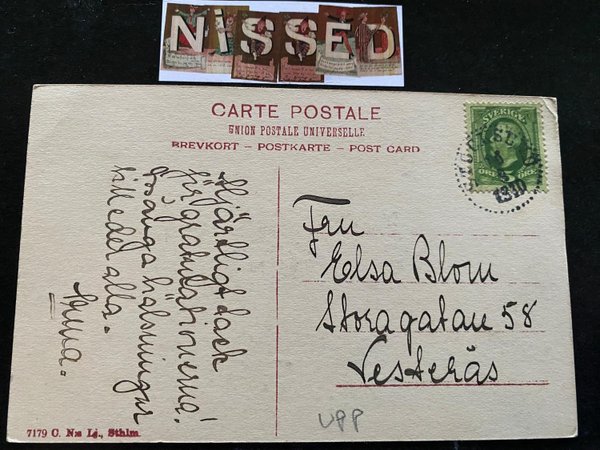 NiSSED
CARTE POSTALE
UNION POSTALE UNIVERSELLE
BREVKORT – POSTKARTE – POST CARD
SVERIGE
ÖRE ÖRE
1910
Hjärtligt tack
för gratulationerna!
Många hälsningar
till eder alla.
Anna.
Fru
Elsa Blom
Storagatan 58
Vesterås
UPP
7179 C. N:s Lj., Sthlm.